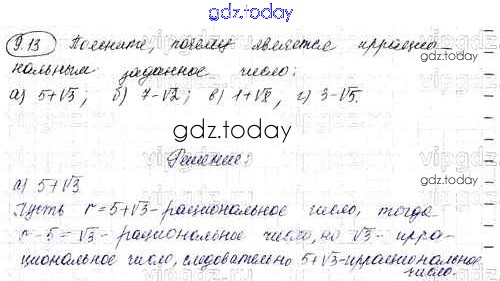 gdz.today
9.13 Поясните, почему является иррацио-
нальным заданное число:
а) 5+√3; б) 7-√2; в) 1+√2; г) 3-√5.
gdz.today
gdz.today
Решение:
а) 5+√3
gdz.today
Пусть r=5+√3-рациональное число, тогда
r-5=√3-рациональное число, но √3- ирра-
циональное число, следовательно 5+√3-иррациональное
число.